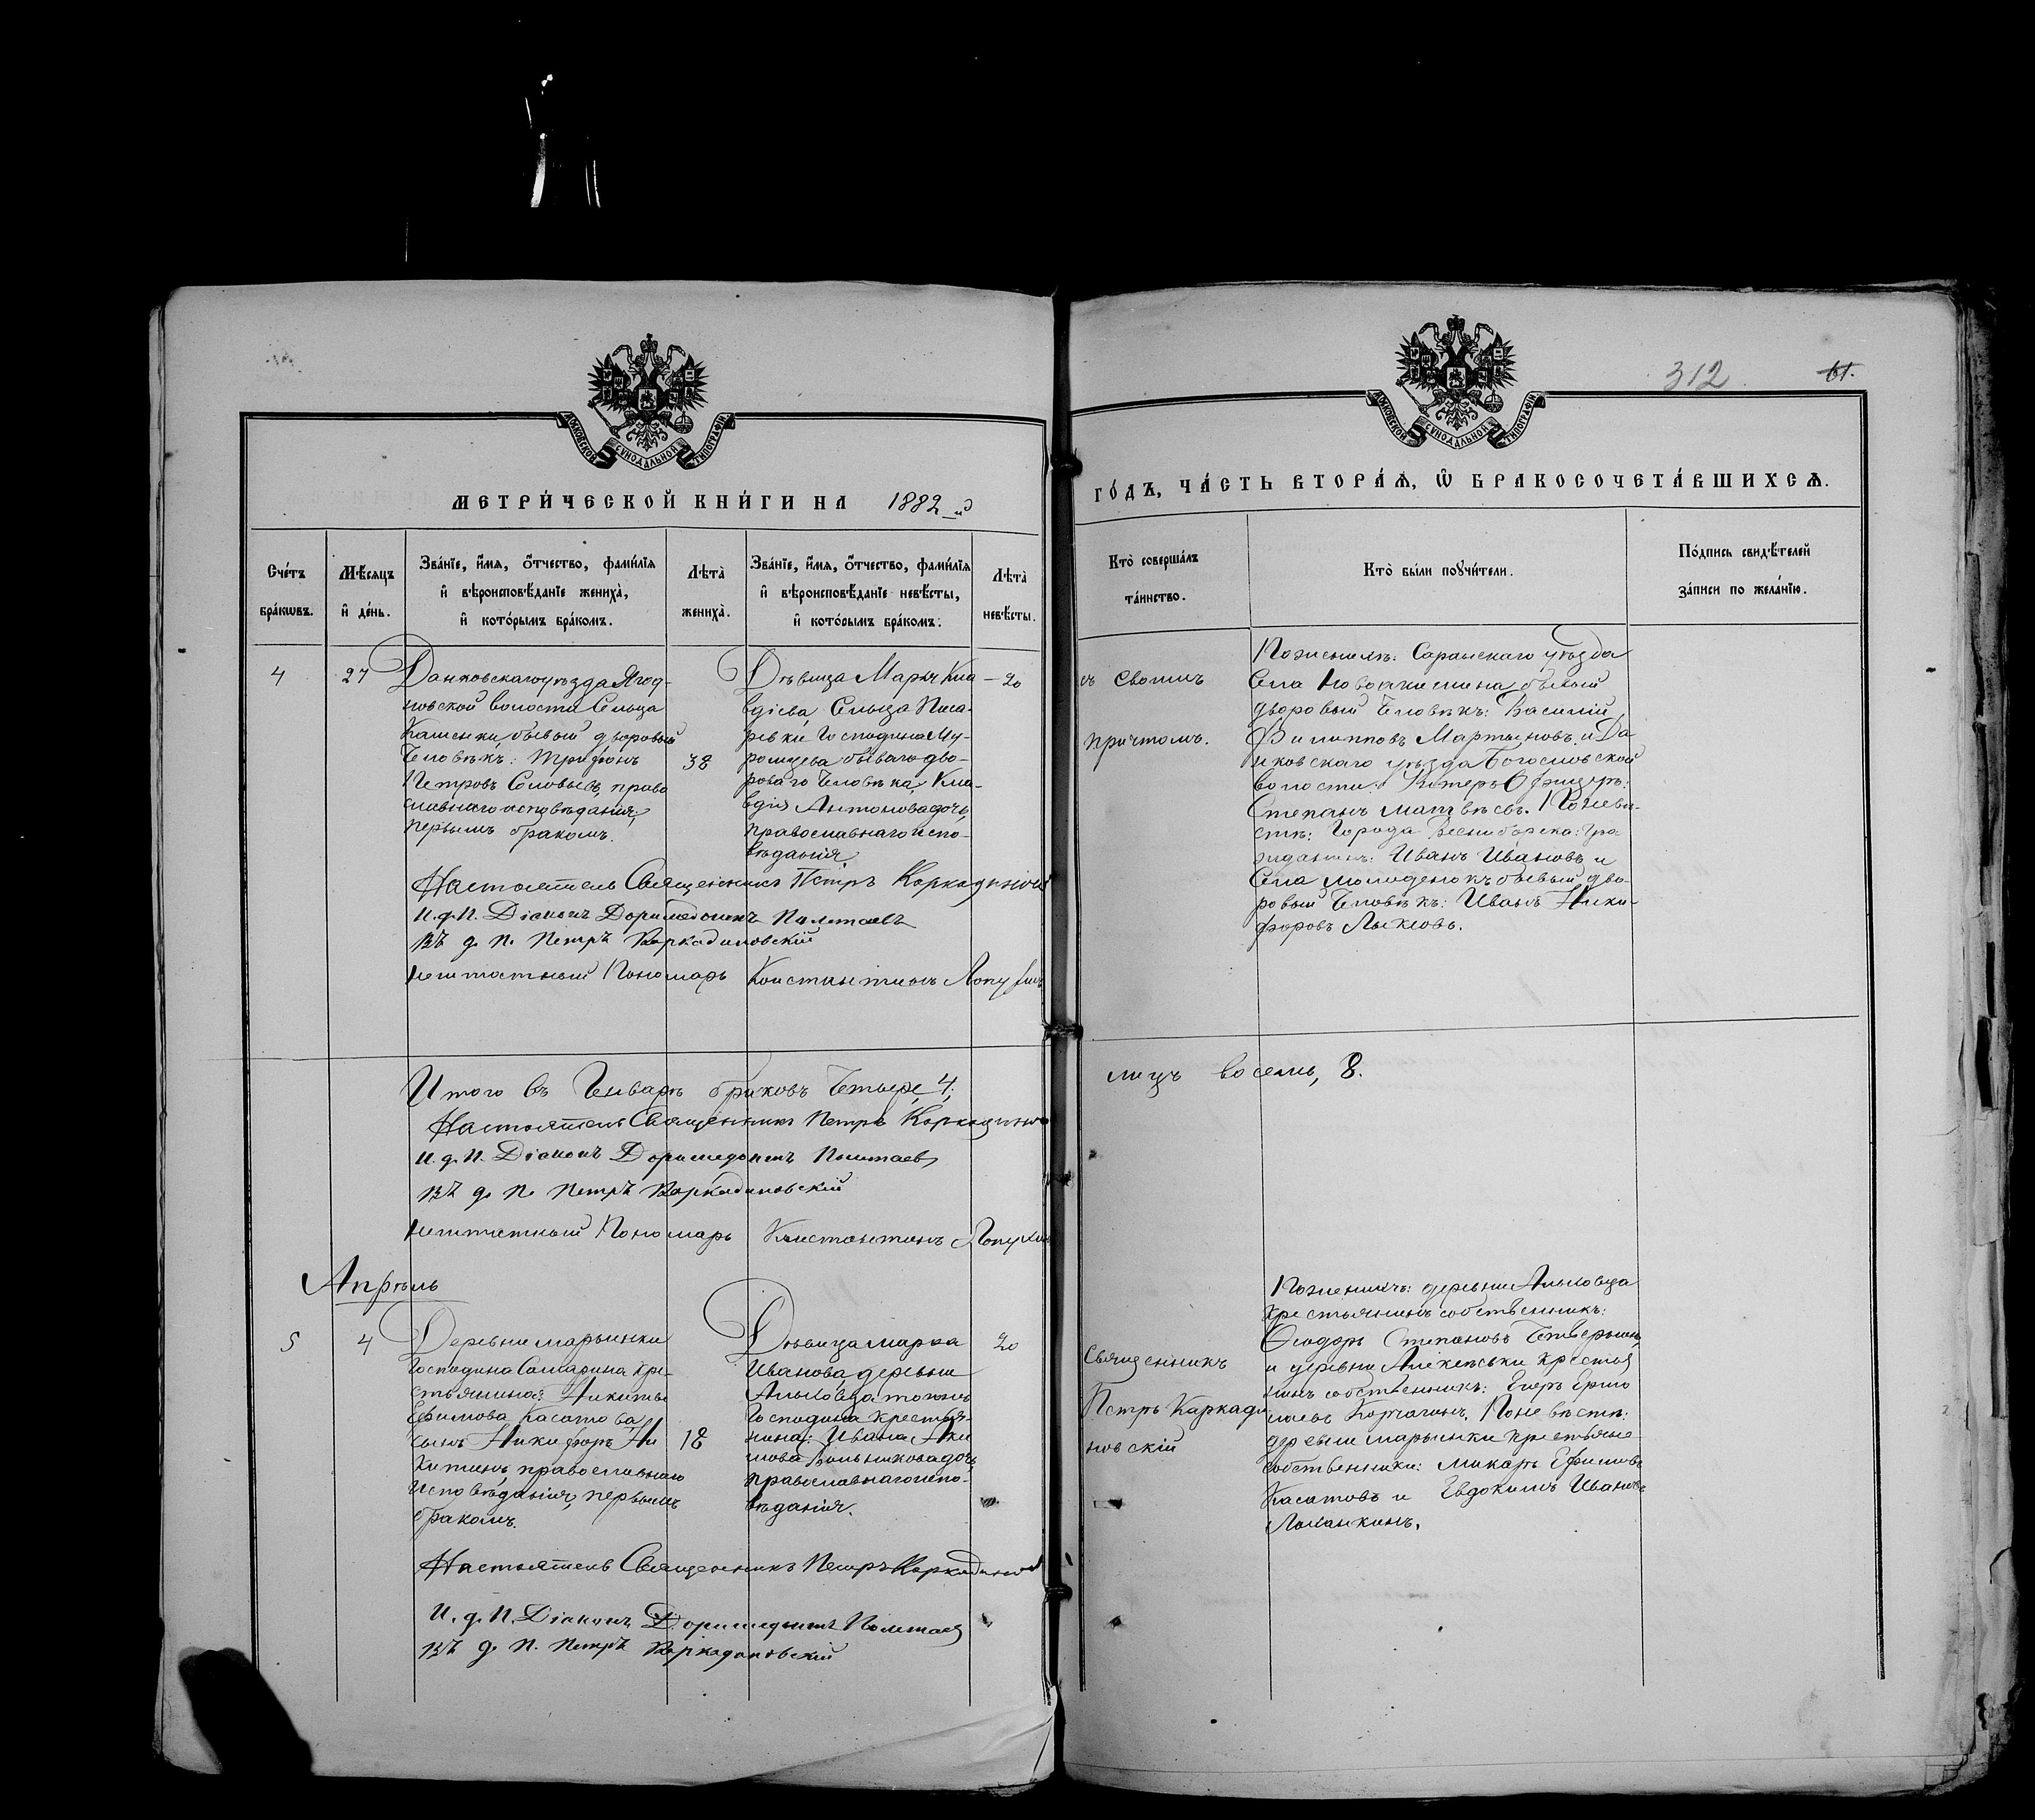 312
61.
МОСКОВСКОЙ СѴНОДАЛЬНОЙ ТИПОГРАФІИ
МОСКОВСКОЙ СѴНОДАЛЬНОЙ ТИПОГРАФІИ
МЕТРИ́ЧЕСКОЙ КНИ́ГИ НА 1882-й
ГО́ДЪ, ЧА́СТЬ ВТОРА́Ѧ, Ѽ БРАКОСОЧЕТА́ВШИХСѦ.
Сче́тъ
бра́кѡвъ.
Мѣ́сяцъ
и҆ де́нь.
Зва́нїе, и҆́мѧ, ѻ҆́тчество, фами́лїѧ
и҆ вѣроисповѣ́данїе жениха̀,
и҆ кото́рымъ бра́комъ.
Лѣта̀
жениха̀.
Зва́нїе, и҆́мѧ, ѻ҆́тчество, фами́лїѧ
и҆ вѣроисповѣ́данїе невѣ́сты,
и҆ кото́рымъ бра́комъ.
Лѣта̀
невѣ́сты.
Кто̀ соверша́лъ
та́инство.
Кто̀ бы́ли порꙋчи́тели.
По́дпись свидѣ́телей
за́писи по жела́нїю.
4
27
Данковскаго уѣзда Ягод-
новской волости Сельца
Каменки, бывый дворовый
Человѣкъ: Трифонъ
Петровъ Соловьевъ, право
славнаго исповѣданія,
первымъ бракомъ.
38
Дѣвица Марія Кла
вдіева, Сельца Писа-
ревки Господина Му-
ромцева бываго дво-
роваго Человѣка, Кла-
вдія Антонова дочь,
православнаго испо-
вѣданія.
20
съ своимъ
причтомъ.
По женихѣ: Саранскаго уѣзда
Села бывый
дворовый Человѣкъ: Василій
Филипповъ Мартыновъ. и Да
нковскаго уѣзда Богословской
волости: Унтеръ Офицеръ:
Степанъ Матвѣевъ. По невѣ-
стѣ: Города гра
жданинъ: Иванъ Ивановъ и
Села Молоденокъ бывый дво-
ровый Человѣкъ: Иванъ Ники-
форовъ Лыковъ.
Настоятель Священникъ Петръ Каркадиновс
И. д. П. Діаконъ Доримедонтъ Полетаевъ
Въ д. П. Петръ Каркадиновскій
нештатный Пономарь Константинъ Лопухинъ
Итого въ Генварѣ браковъ Четыре, 4;
лицъ восемь, 8.
Настоятель Священникъ Петръ Каркадинов
И. д. П. Діаконъ Доримедонтъ Полетаевъ
Въ д. П. Петръ Каркадиновскій
нештатный Пономарь Константинъ Лопухин
Апрѣль
5
4
Деревни Марьинки
Господина Самарина кре-
стьянина: Никиты
Ефимова Касатова
сынъ Никифоръ Ни
китинъ, православнаго
исповѣданія, первымъ
бракомъ.
18
Дѣвица Марѳа
Иванова, деревни
тогожъ
Господина крестья-
нина: Ивана Яки
мова дочь,
православнаго испо-
вѣданія.
20
Священникъ
Петръ Каркади
новскій
По женихѣ: деревни
крестьянинъ собственникъ:
Ѳеодоръ Степановъ
и деревни Алексѣевки крестья
нинъ собственникъ: Егоръ Ермо
лаевъ Корчагинъ. По невѣстѣ:
деревни Марьинки крестьяне
собственники: Макаръ Ефимовъ
Касатовъ и Евдокимъ Ивановъ
Лоханкинъ.
Настоятель Священникъ Петръ Каркадинов
И. д. П. Діаконъ Доримедонтъ Полетаев
Въ д. П. Петръ Каркадиновскій